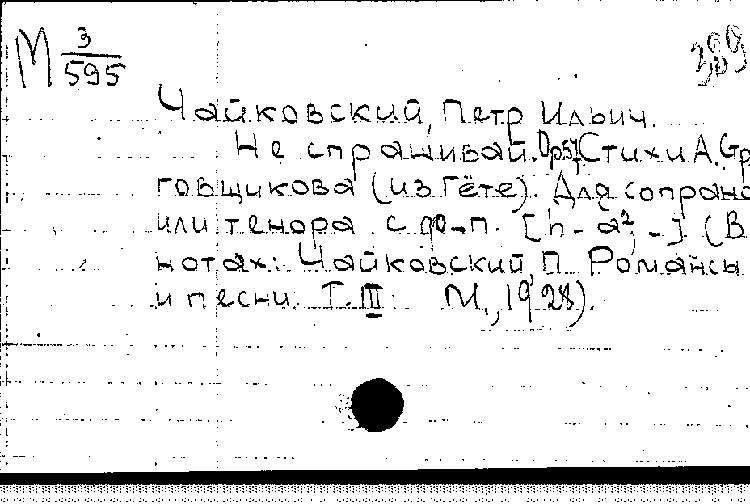 М 3/595
Чайковский, Петр Ильич.
Не спрашивай. Op.57 Стихи А. Стр
говщикова (из Гёте). Для сопрано
или тенора с ф-п. [h-a²; -] (В
нотах: Чайковский, П. Романсы
и песни. Т. III М., 1928).